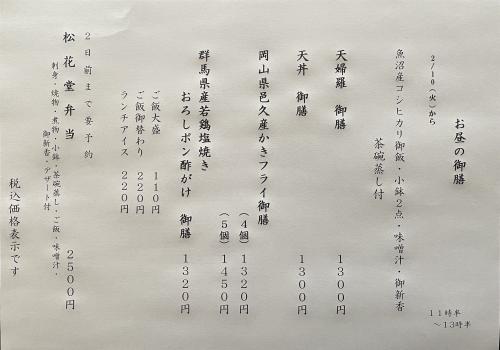 お昼の御膳
11時半
～13時半
2/10(火)から
魚沼産コシヒカリ御飯・小鉢2点・味噌汁・御新香
茶碗蒸し付
天婦羅 御膳 1300円
天丼 御膳 1300円
岡山県邑久産かきフライ御膳
(4個) 1320円
(5個) 1450円
群馬県産若鶏塩焼き
おろしポン酢がけ 御膳 1320円
ご飯大盛 110円
ご飯御替わり 220円
ランチアイス 220円
2日前まで要予約
松花堂弁当 2500円
刺身・焼物・煮物・小鉢・茶碗蒸し・ご飯・味噌汁・
御新香・デザート付
税込価格表示です